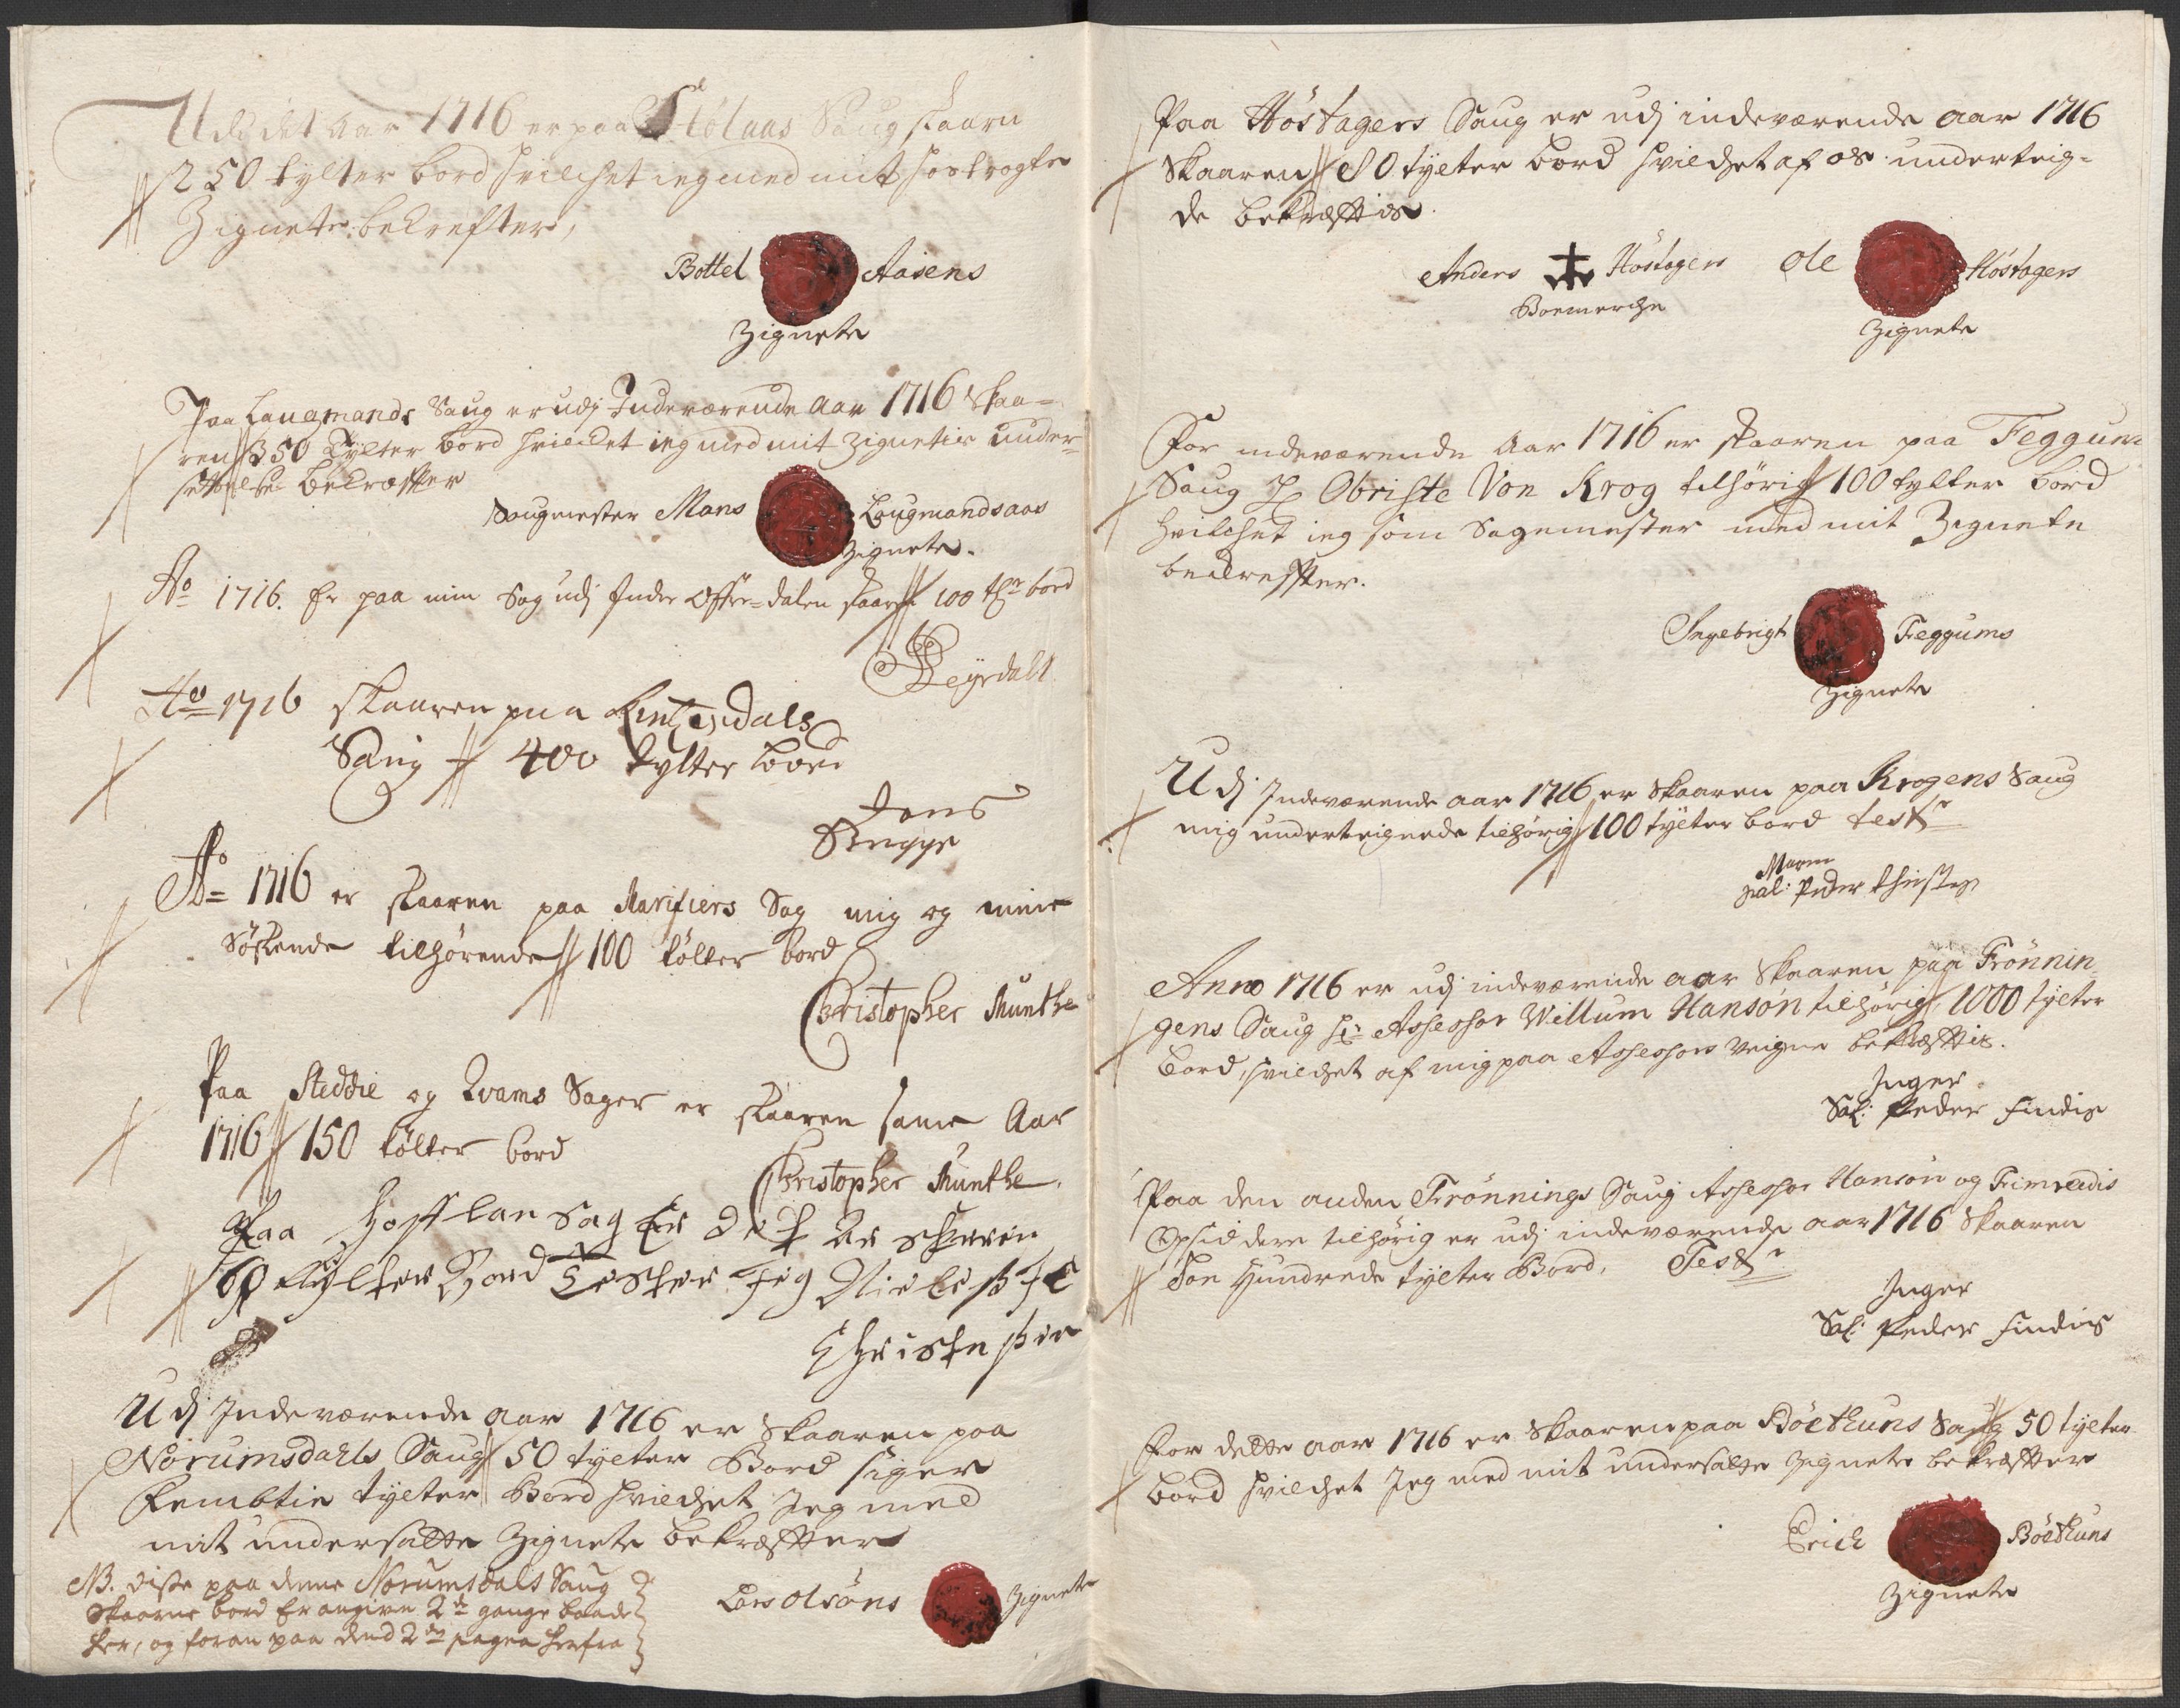 Udi det Aar 1716 er paa Stølaas Saug skaarn
250 tylter bord hvilchet ieg med mit hostrogte
Zignete bekrefter,
Bottel Aasens
Zignete
Paa Laugmands Saug er udj Indeværende Aar 1716 Skaa-
ren 350 Tylter bord hvilchet ieg med mit Zignetis under-
settelse bekræfter
Saugmester Mons Laugmandsaas
Zignete.
Ao 1716. Er paa min Sag udj Indre Offre-dalen skaaren 100 tlr bord
Leyrdahl
Ao 1716 skaaren paa
Saug 400 tylter bord
Jens
Skrepp
Ao 1716 er skaaren paa Marifiers Sag mig og mine
Søskende tilhørende 100 tølter bord
Christopher Munthe
Paa Steddie og Qvams Sager er skaaren samme Aar
1716 150 tølter bord
Christopher Munthe.
Paa Hofslan Sag Er dette Ar schorren
60 tylter Bord Tester Jeg Niels
Christensen
Udj Indeværende aar 1716 er Skaaren paa
Norumsdahls Saug 50 tylter Bord siger
Fembtie tylter Bord hvilchet Jeg med
mit undersatte Zignete bekræfter
Lars Olsøns Zignete
NB. disse paa denne Norumsdals Saug
Skaarne bord Er angiven 2de gange baade
her, og foran paa dend 2den pagina herfra
Paa Høstagers Saug er udj indeværende aar 1716
Skaaren 80 tylter bord hvilchet af os underteig-
de bekræftis
Anders Høstagers Ole Høstagers
Boemerche Zignete
For indeværende Aar 1716 er skaaren paa Feggum
Saug Hr Obriste Von Krog tilhørig 100 tylter bord
hvilchet ieg som Sagemester med mit Zignete
bekræfter.
Ingebrigt Feggums
Zignete
Udj Indeværende aar 1716 er Skaaren paa Krogens Saug
mig underteignede tilhørig 100 tylter bord test
Maren
Sal: Peder
Anno 1716 er udj indeværende aar Skaaren paa Frønnin
gens Saug Hr Assessor Willum Hansøn tilhørig 1000 tylter
bord, hvilchet af mig paa Assessors veigne bekræftis.
Inger
Sal: Peder Findis
Paa den anden Frønnings Saug Assessor Hansøn og Frimreidis
Opsiddere tilhørig er udj indeværende aar 1716 Skaaren
Toe Hundrede tylter Bord. Test
Inger
Sal: Peder Findis
For dette aar 1716 er Skaaren paa Bøethuns Saug 50 tylter
bord hvilchet Jeg med mit undersatte Zignete bekræfter
Erich Bøethuns
Zignete